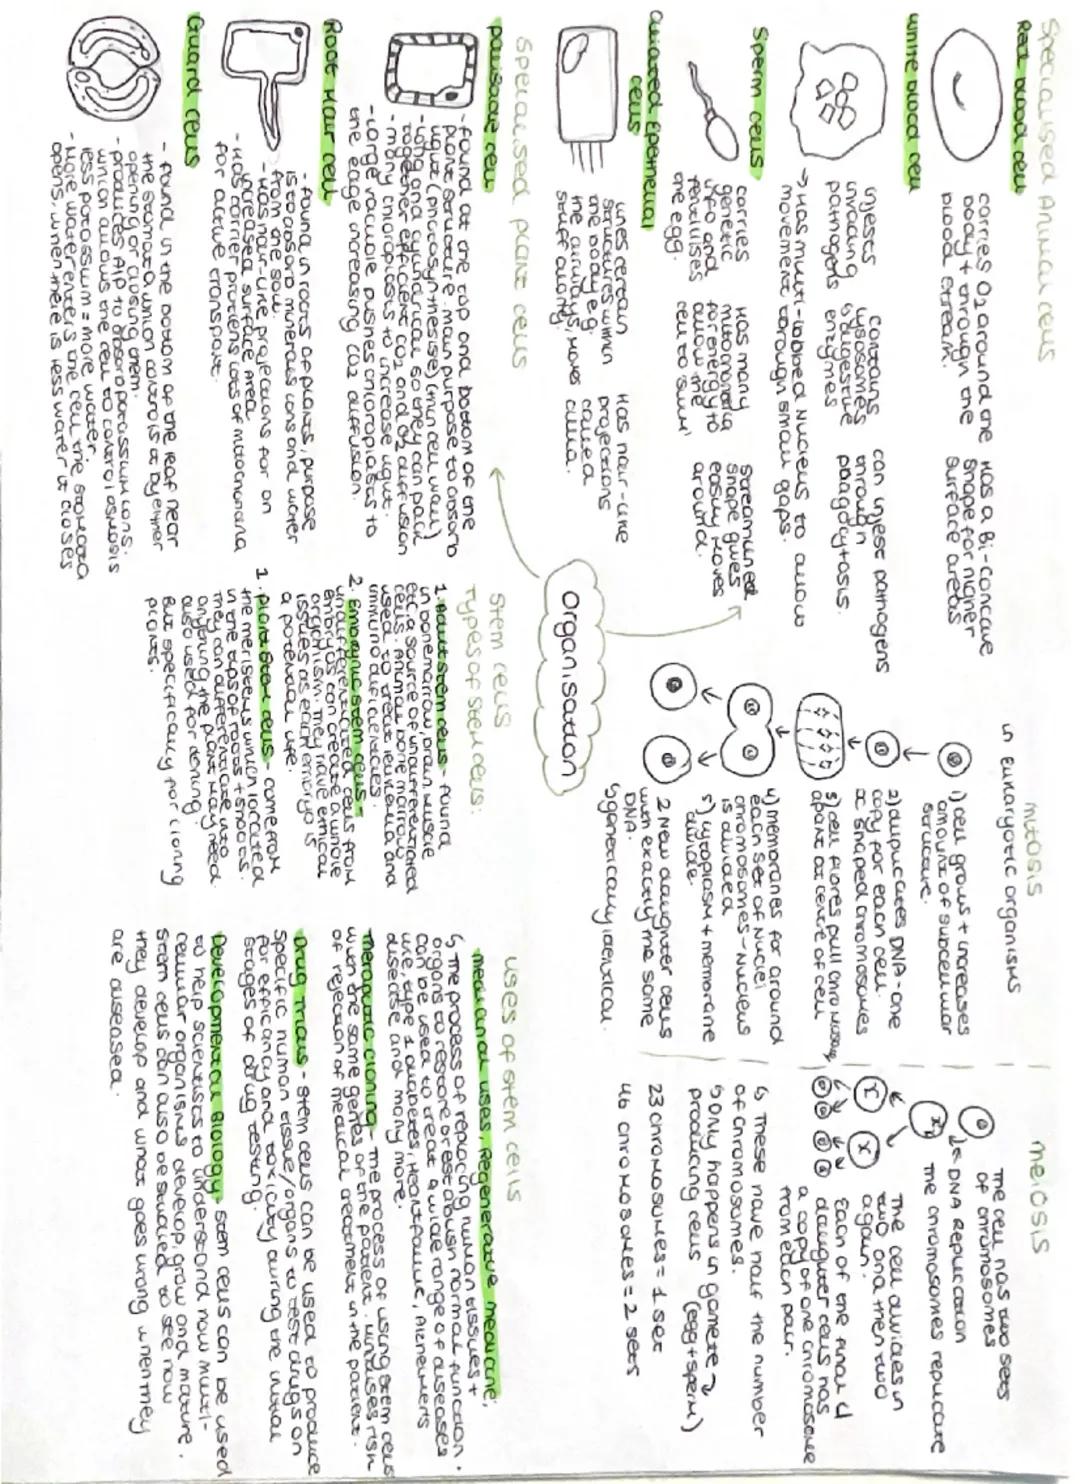 Specialised Animal cells
Red blood cell
carries O2 around the
body + through the
blood stream.
Has a Bi-concave
shape for higher
surface areas
white blood cell
injests
invading
pathogens
contains
lysosomes
& digestive
enzymes
can injest pathogens
through
phagocytosis.
→ Has multi-lobbed nucleus to allow
movement through small gaps.
Sperm cells
carries
genetic
info and
fertilises
the egg.
Has many
mitochondria
for energy to
allow the
cell to swim
Streamlined
shape gives
easily moves
around.
ciliated Epithelial
cells
Lines certain
structures within
the body e.g.
the airways, moves
stuff along.
Has hair-like
projections
called
cilia.
Specialised plant cells
palisade cell
- found at the top and bottom of the
plant structure. main purpose to absorb
light (photosynthesise) (thin cell wall)
- long and cylindrical so they can pack
together efficient CO2 and O2 diffusion
- many chloroplasts to increase light.
- Large vacuole pushes chloroplasts to
the edge increasing CO2 diffusion.
Root Hair cell
- found in roots of plants, purpose
is to absorb minerals ions and water
from the soil.
- Has hair-like projections for an
increased surface area
- Has carrier proteins lots of mitochondria
for active transport.
Guard cells
- found in the bottom of the leaf near
the stomata which controls it by either
opening or closing them.
- produces ATP to absorb potassium ions.
which allows the cell to control osmosis
less potassium = more water.
- More water enters the cell the stomata
opens, when there is less water it closes
Organisation
Stem cells
Types of stem cells:
1. Adult stem cells - found
in bone marrow, brain, muscle
etc. a source of undifferentiated
cells. Animal bone marrow
used to treat leukemia and
immunodificientcies.
2. Embryonic stem cells -
undifferentiated cells from
embryos can create a whole
organism. They have ethical
issues as each embryo is
a potential life.
1. plant stem cells - come from
the meristems which located
in the tips of roots + shoots.
they can differenticate into
anything the plant may need.
also used for cloning
but specifically for cloning
plants.
mitosis
in eukaryotic organisms
1) cell grows + increases
amount of subcellular
structure.
2) duplicates DNA - one
copy for each cell.
x shaped chromosomes
3) cell fibres pull chromosomes
apart at centre of cell
4) membranes for around
each set of nuclei
chromosomes - nucleus
is divided
5) cytoplasm + membrane
divide.
2 new daughter cells
with exactly the same
DNA.
↳ genetically identical.
meiosis
The cell has two sets
of chromosomes
DNA Replication
The chromosomes replicate
The cell divides in
two and then two
again.
Each of the final 4
daughter cells has
a copy of one chromosome
from each pair.
↳ These have half the number
of chromosomes.
↳ Only happens in gamete
producing cells (egg + sperm)
23 chromosomes = 1 set
46 chromosomes = 2 sets
uses of stem cells
medical uses, Regenerative medicine,
↳ The process of replacing human tissues +
organs to restore or establish normal function.
can be used to treat a wide range of diseases
like type 1 diabetes, Heart failure, Alzheimers
disease and many more.
Therapeutic cloning - The process of using stem cells
with the same genes of the patient. minimises risk
of rejection of medical treatment in the patient.
Drug Trials - Stem cells can be used to produce
specific human tissue/organs to test drugs on
for efficiancy and toxicity during the initial
stages of drug testing.
Developmental Biology - Stem cells can be used
to help scientists to understand how multi-
cellular organisms develop, grow and mature.
Stem cells can also be studied to see how
they develop and what goes wrong when they
are diseased.